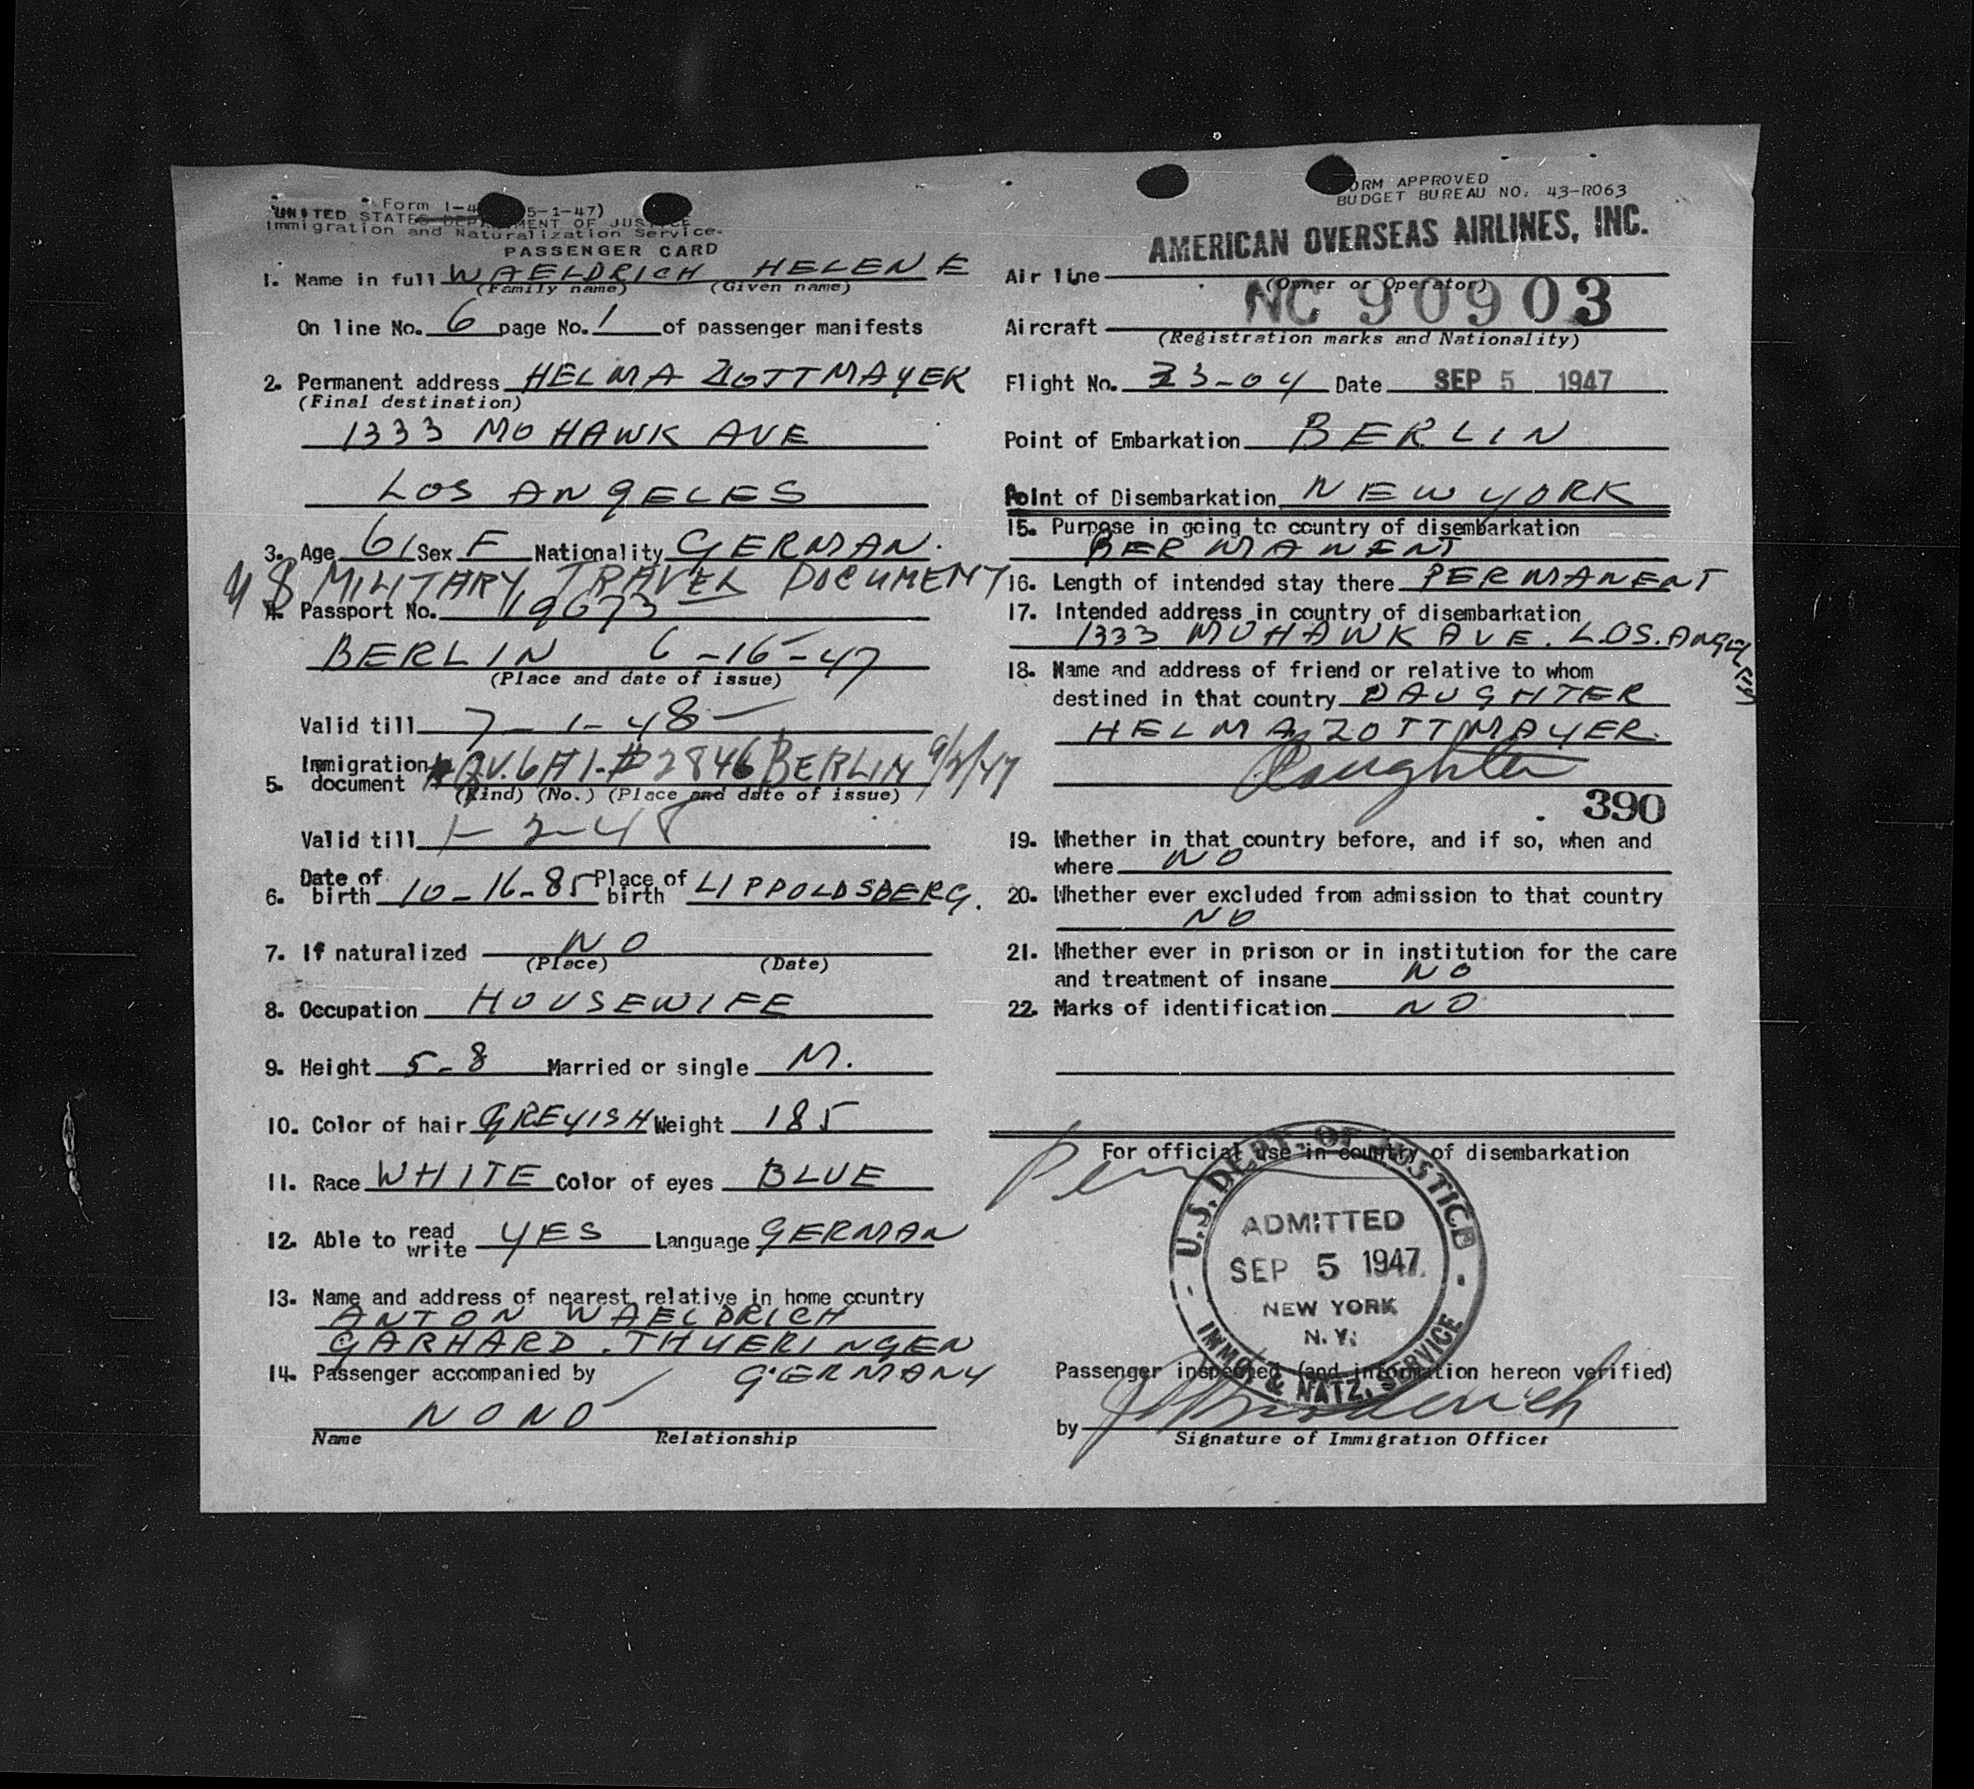 Form I-4 5-1-47)
UNITED STATES DEPARTMENT OF JUSTICE
Immigration and Naturalization Service.
PASSENGER CARD
1. Name in full WAELDRICH HELENE
(Family name) (Given name)
On line No. 6 page No. 1 of passenger manifests
2. Permanent address HELMA ZOTTMAYER
(Final destination)
1333 MOHAWK AVE
LOS ANGELES
3. Age 61 Sex F Nationality GERMAN.
MILITARY TRAVEL DOCUMENT
4. Passport No. 19673
BERLIN 6-16-47
(Place and date of issue)
Valid till 7-1-48
Immigration
5. document QV.6#1-#2846 BERLIN 9/2/47
(Kind) (No.) (Place and date of issue)
Valid till 1-2-48
6. Date of birth 10-16-85 Place of birth LIPPOLDSBERG.
7. If naturalized NO
(Place) (Date)
8. Occupation HOUSEWIFE
9. Height 5-8 Married or single M.
10. Color of hair GREYISH Weight 185
11. Race WHITE Color of eyes BLUE
12. Able to read write YES Language GERMAN
13. Name and address of nearest relative in home country
ANTON WAELDRICH
GARHARD. THUERINGEN
14. Passenger accompanied by GERMANY
NONO
Name Relationship
FORM APPROVED
BUDGET BUREAU NO. 43-R063
AMERICAN OVERSEAS AIRLINES, INC.
Air line
(Owner or Operator)
NC 90903
Aircraft
(Registration marks and Nationality)
Flight No. 23-04 Date SEP 5 1947
Point of Embarkation BERLIN
Point of Disembarkation NEW YORK
15. Purpose in going to country of disembarkation
PERMANENT
16. Length of intended stay there PERMANENT
17. Intended address in country of disembarkation
1333 MOHAWK AVE. LOS. ANGELES
18. Name and address of friend or relative to whom
destined in that country DAUGHTER
HELMA ZOTTMAYER.
Daughter
390
19. Whether in that country before, and if so, when and
where NO
20. Whether ever excluded from admission to that country
NO
21. Whether ever in prison or in institution for the care
and treatment of insane NO
22. Marks of identification NO
For official use in country of disembarkation
U.S. DEPT. OF JUSTICE
ADMITTED
SEP 5 1947
NEW YORK
N. Y.
IMMG. & NATZ. SERVICE
Passenger inspected (and information hereon verified)
by
Signature of Immigration Officer